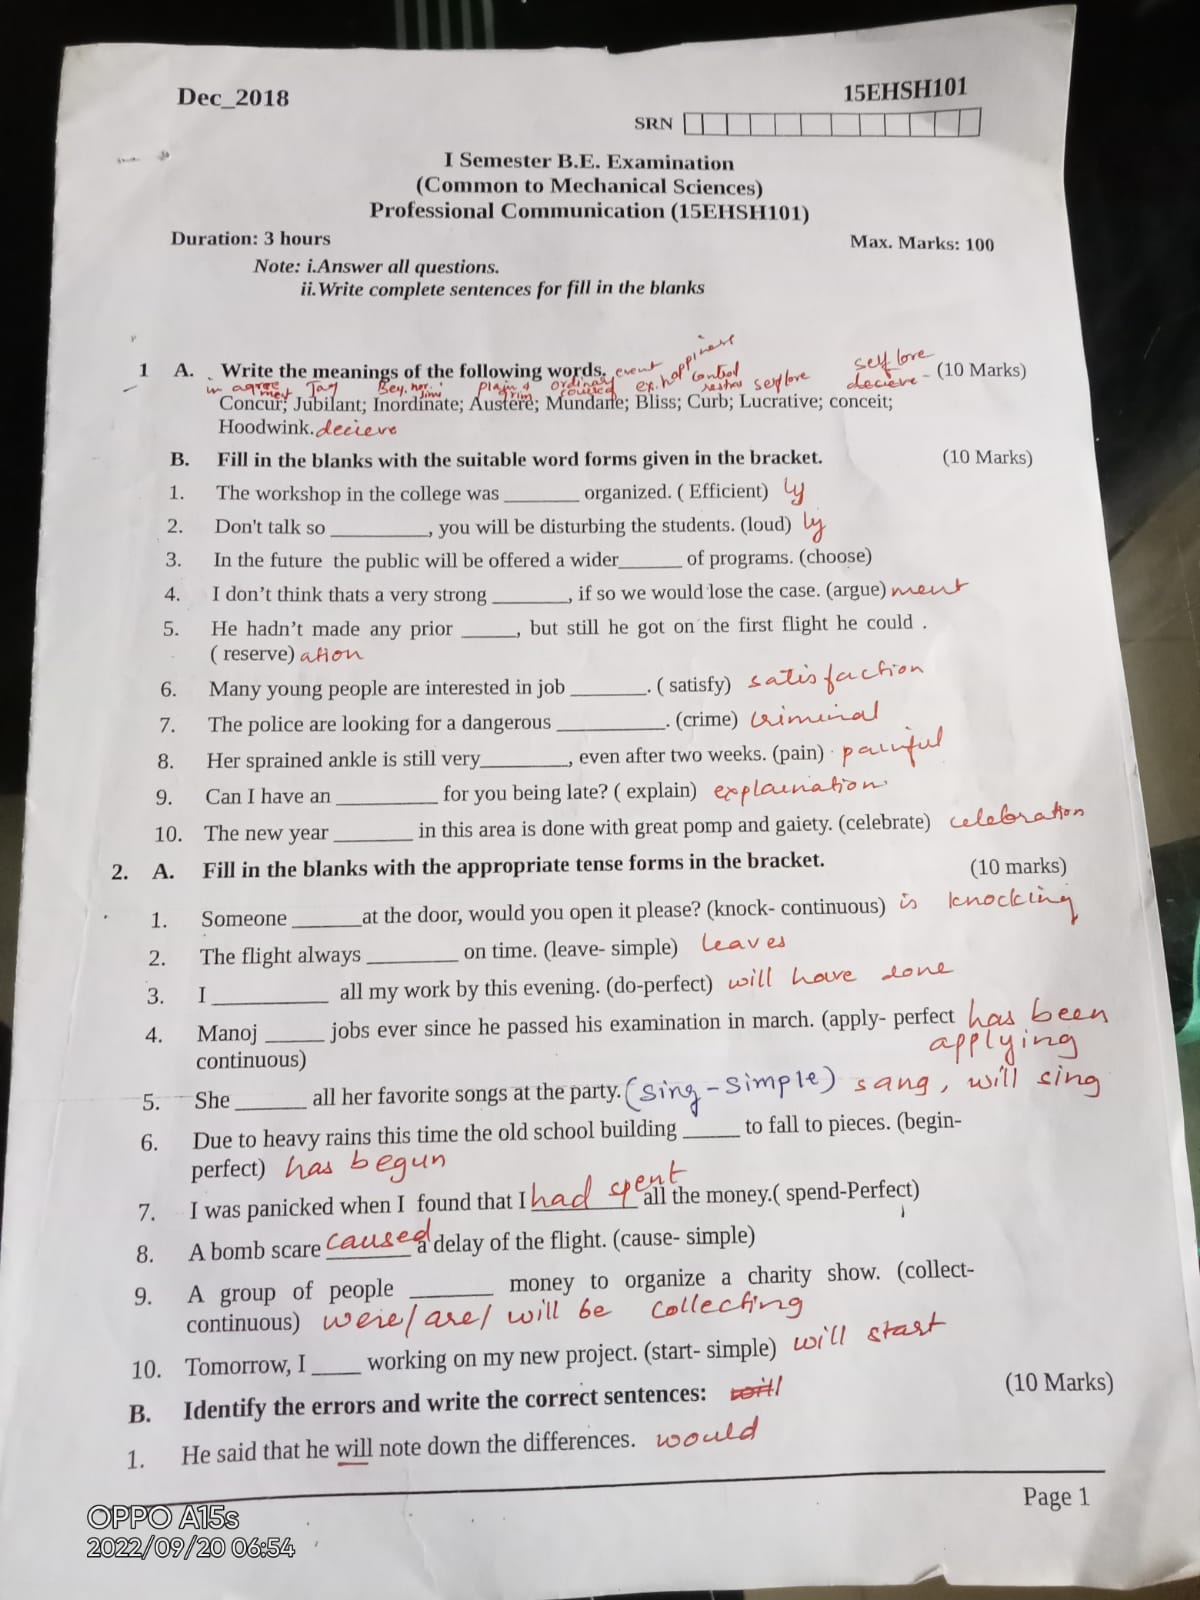 Dec_2018
15EHSH101
SRN
I Semester B.E. Examination
(Common to Mechanical Sciences)
Professional Communication (15EHSH101)
Duration: 3 hours
Max. Marks: 100
Note: i.Answer all questions.
ii.Write complete sentences for fill in the blanks
1 A. Write the meanings of the following words. event happiness self love (10 Marks)
in agree ment Joy Bey. nor. plain & grim ordinary ex. hap control self love decieve -
Concur; Jubilant; Inordinate; Austere; Mundane; Bliss; Curb; Lucrative; conceit;
Hoodwink. decieve
B. Fill in the blanks with the suitable word forms given in the bracket. (10 Marks)
1. The workshop in the college was _______ organized. ( Efficient) ly
2. Don't talk so _________, you will be disturbing the students. (loud) ly
3. In the future the public will be offered a wider______ of programs. (choose)
4. I don’t think thats a very strong _______, if so we would lose the case. (argue) ment
5. He hadn’t made any prior _____, but still he got on the first flight he could .
( reserve) ation
6. Many young people are interested in job _______. ( satisfy) satisfaction
7. The police are looking for a dangerous __________. (crime) criminal
8. Her sprained ankle is still very________, even after two weeks. (pain) painful
9. Can I have an _________ for you being late? ( explain) explaination
10. The new year _______ in this area is done with great pomp and gaiety. (celebrate) celebration
2. A. Fill in the blanks with the appropriate tense forms in the bracket. (10 marks)
1. Someone ______at the door, would you open it please? (knock- continuous) is knocking
2. The flight always ________ on time. (leave- simple) leaves
3. I __________ all my work by this evening. (do-perfect) will have done
4. Manoj _____ jobs ever since he passed his examination in march. (apply- perfect has been
continuous) applying
5. She ______ all her favorite songs at the party. (sing-simple) sang, will sing
6. Due to heavy rains this time the old school building _____ to fall to pieces. (begin-
perfect) has begun
7. I was panicked when I found that I had spent all the money.( spend-Perfect)
8. A bomb scare caused a delay of the flight. (cause- simple)
9. A group of people _______ money to organize a charity show. (collect-
continuous) were/are/ will be collecting
10. Tomorrow, I ____ working on my new project. (start- simple) will start
B. Identify the errors and write the correct sentences: (10 Marks)
1. He said that he will note down the differences. would
Page 1
OPPO A15s
2022/09/20 06:54